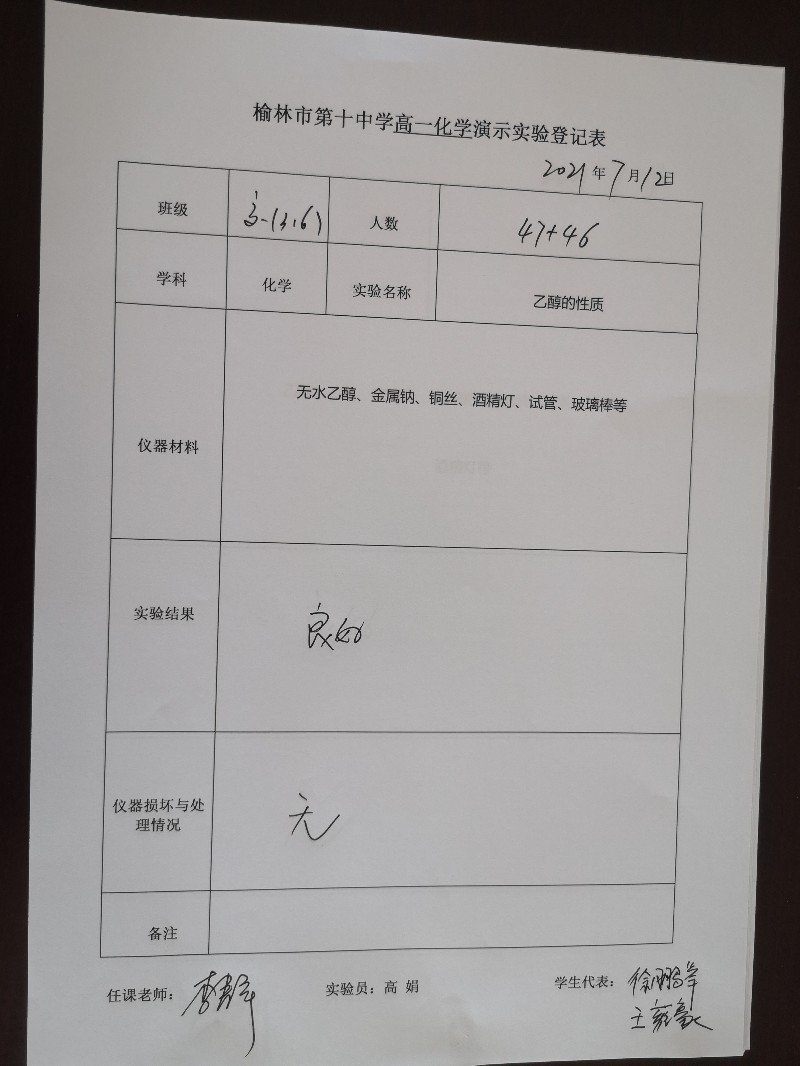 榆林市第十中学高一化学演示实验登记表
2021年7月12日
班级 高一(3,6) 人数 47+46
学科 化学 实验名称 乙醇的性质
仪器材料 无水乙醇、金属钠、铜丝、酒精灯、试管、玻璃棒等
实验结果 良好
仪器损坏与处
理情况 无
备注
任课老师： 实验员：高 娟 学生代表：徐鹏
王